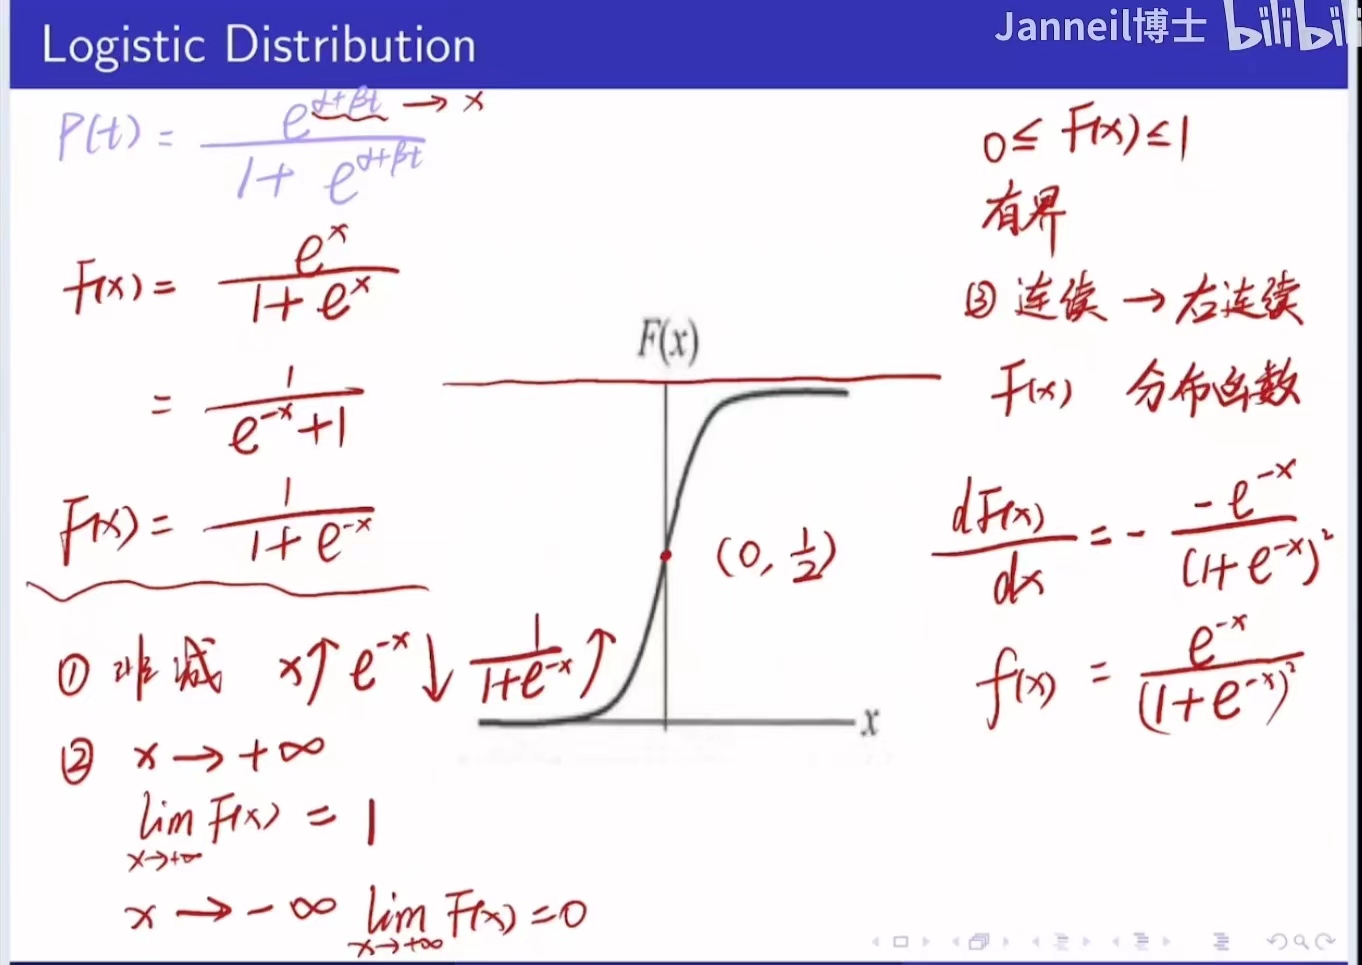 Logistic Distribution
Janneil博士 bilibili
P(t) = e^{α+βt} / (1 + e^{α+βt}) → x
F(x) = e^x / (1 + e^x)
= 1 / (e^{-x} + 1)
F(x) = 1 / (1 + e^{-x})
① 非减 x↑ e^{-x}↓ 1 / (1+e^{-x}) ↑
② x → +∞
lim_{x→+∞} F(x) = 1
x → -∞ lim_{x→+∞} F(x) = 0
F(x)
(0, 1/2)
x
0 ≤ F(x) ≤ 1
有界
③ 连续 → 右连续
F(x) 分布函数
dF(x)/dx = - -e^{-x} / (1+e^{-x})²
f(x) = e^{-x} / (1+e^{-x})²